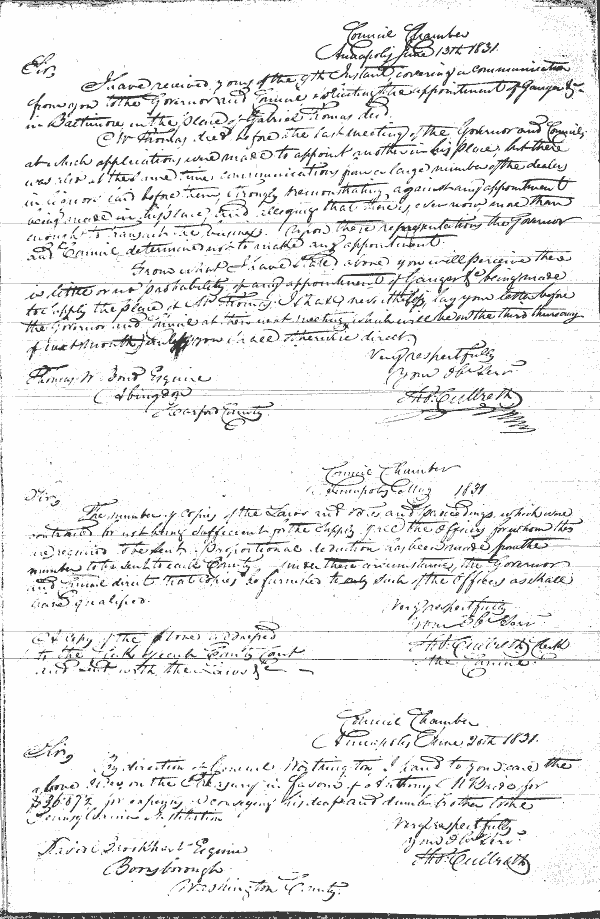 Council Chamber
Annapolis June 13th 1831
Sir,
I have received yours of the 9th Instant, covering a communication
from you to the Governor and Council soliciting the appointment of Gauger &c
in Baltimore in the place of Gabriel Thomas decd.
Mr Thomas died before the last meeting of the Governor and Council
at which applications were made to appoint another in his place but there
was also at the same time communications from a large number of the dealers
in liquor laid before them, strongly remonstrating against any appointment
being made in his place and alleging that there is even now more than
enough to transact the business. Upon these representations the Governor
and Council determined not to make any appointment.
From what I have stated above you will perceive there
is little or no probability of any appointment of Gauger &c being made
to supply the place of Mr Thomas. I shall nevertheless lay your letter before
the Governor and Council at their next meeting which will be on the third Thursday
of next month
Very respectfully
Your Obt Servt
Thos. Culbreth
Thomas W. Bond Esquire
Abingdon
Harford County
Council Chamber
Annapolis May 1831
Sir,
The number of copies of the Laws and votes and proceedings which were
contracted for not being sufficient for the supply of all the Officers for whom they
are required to be sent. A proportional deduction has been made from the
number to be sent to each County. Under these circumstances, the Governor
and Council direct that copies be furnished to only such of the Officers as shall
have qualified.
Very respectfully
Your Obt Servt
Thos. Culbreth Clerk
the Council
A copy of the above addressed
to the Clerk of each County Court
and sent with the Laws &c
Council Chamber
Annapolis June 20th 1831.
Sir,
By direction of Colonel Worthington I hand to you here the
above Order on the Treasury in favour of Anthony McBride for
$36.67½ for expenses in conveying his deaf and dumb brother to the
Pennsylvania Institution
Very respectfully
Your Obt Servt
Thos. Culbreth
David Brookhart Esquire
Boonsborough
Washington County.